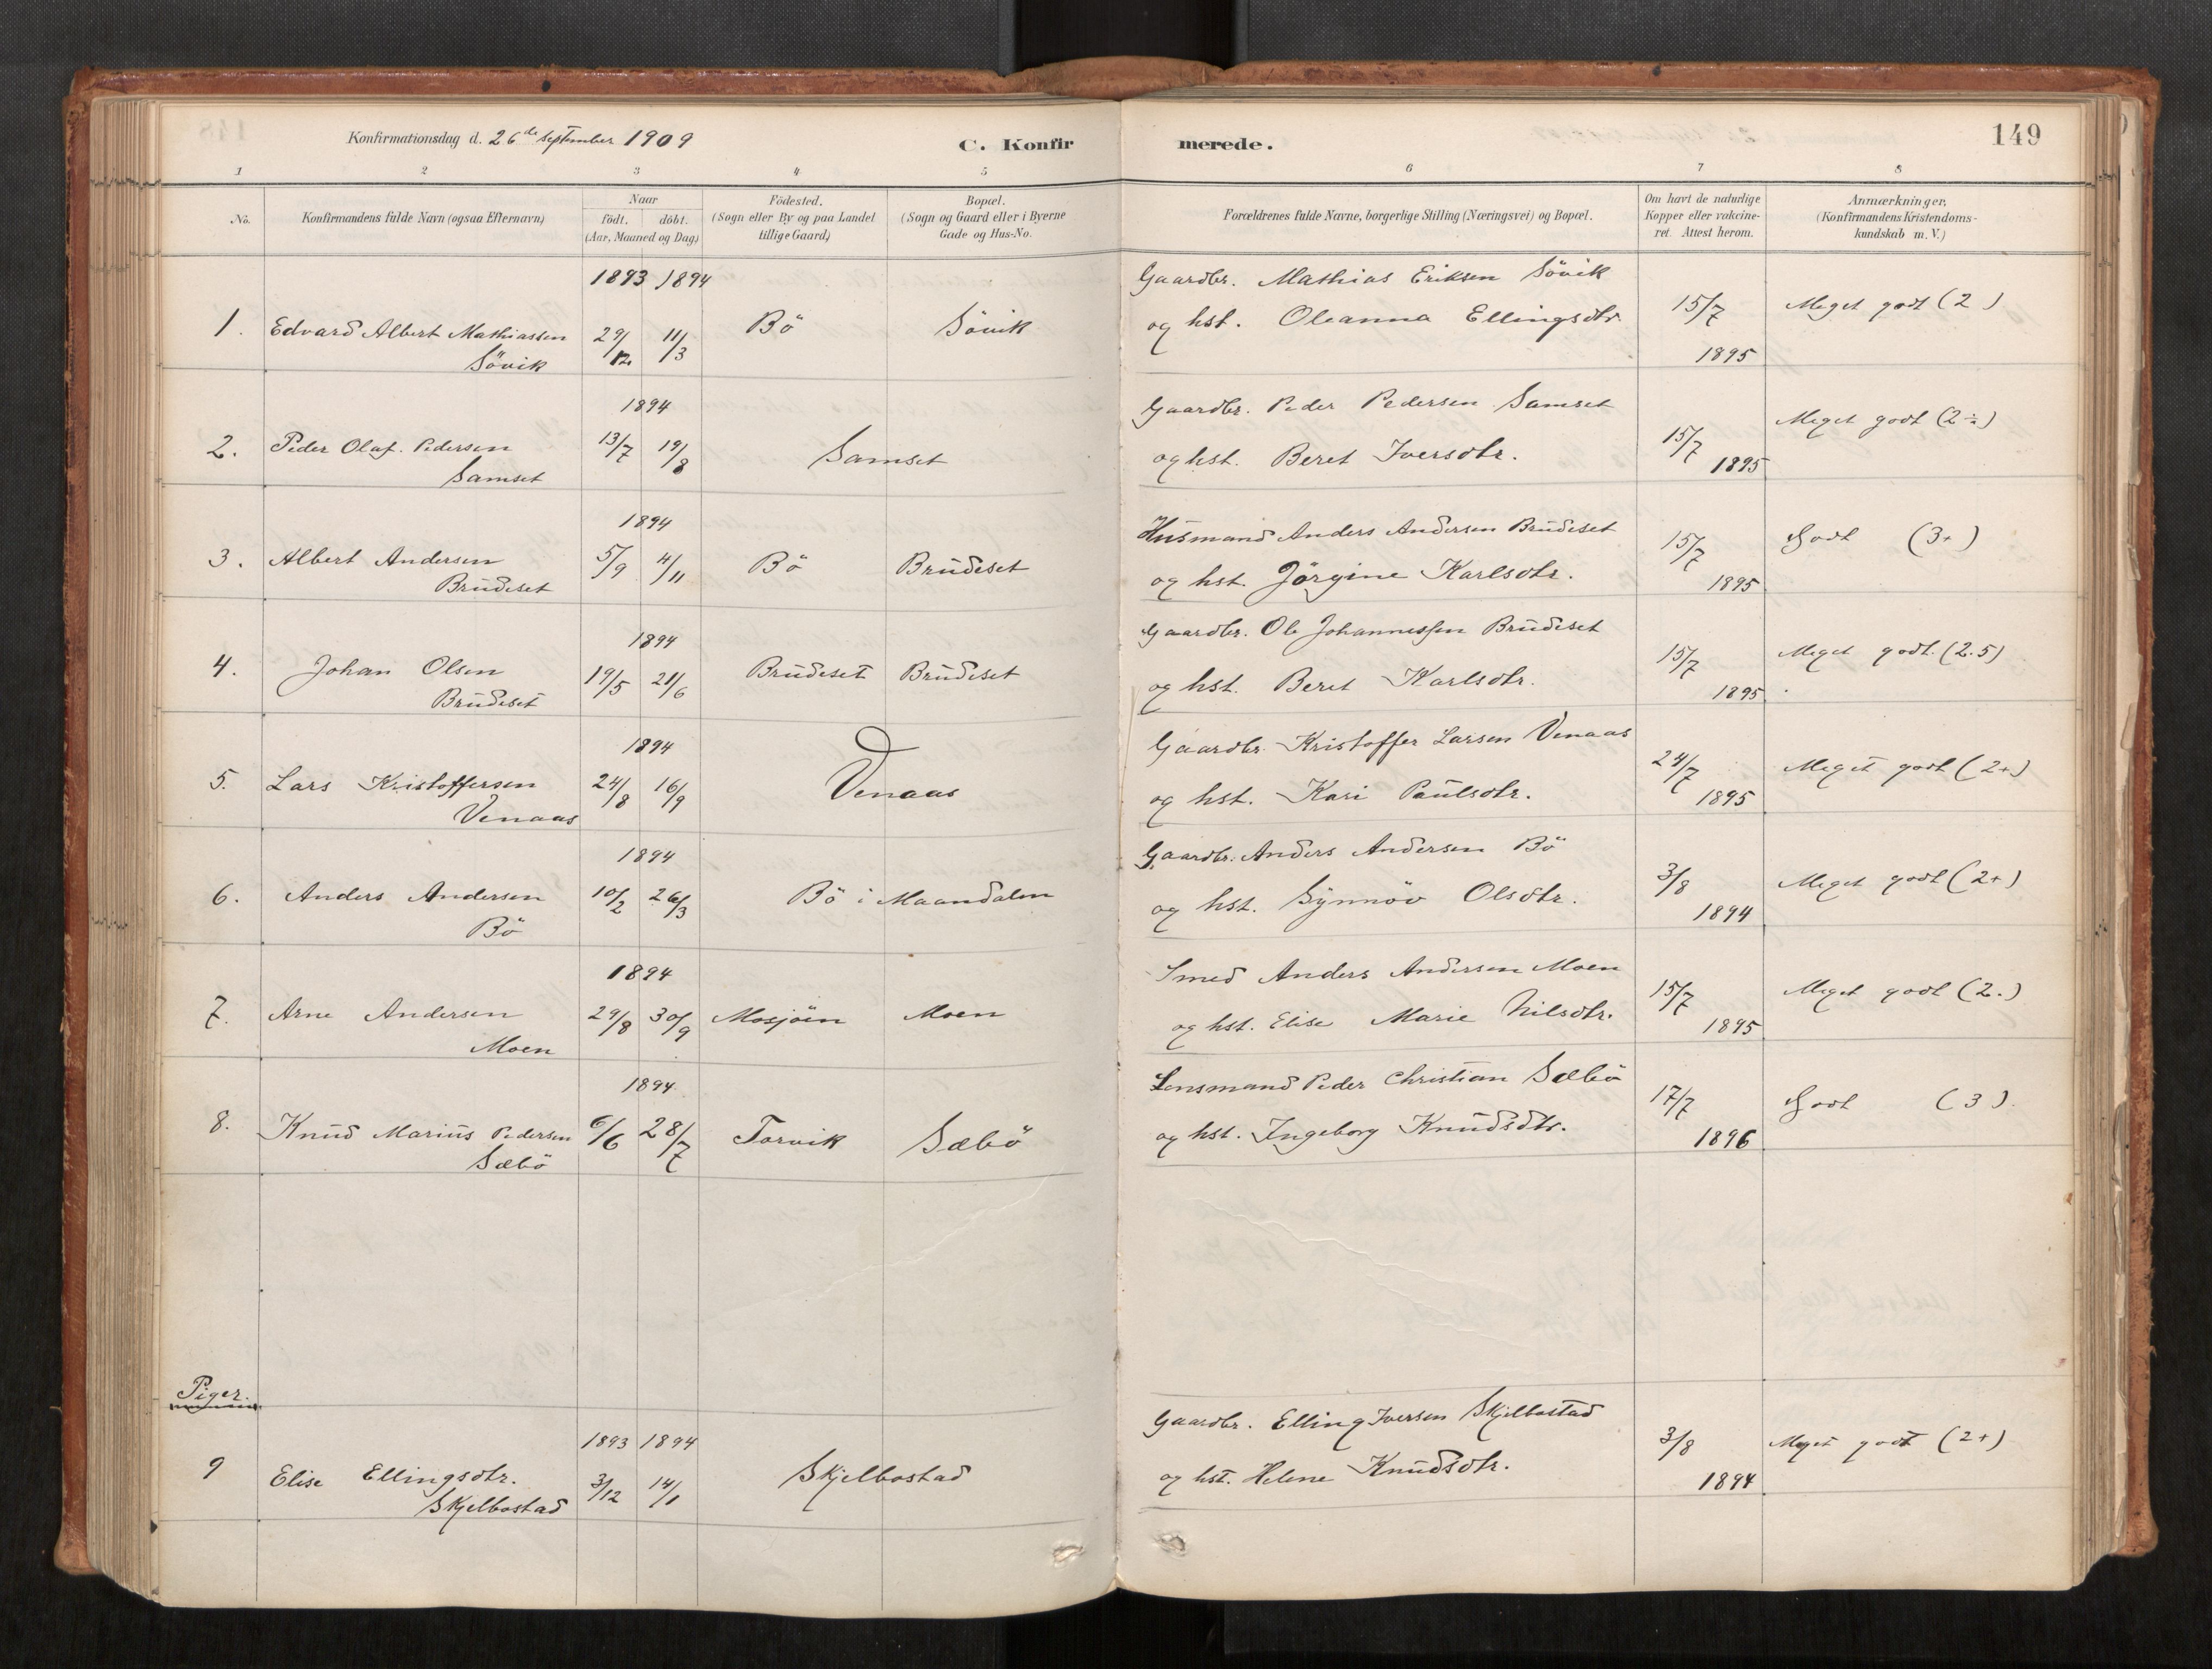 Konfirmationsdag d. 26de September 1909
C. Konfirmerede.
149
1 2 3 4 5 6 7 8
No.
Konfirmandens fulde Navn (ogsaa Efternavn)
Naar
födt. döbt.
(Aar, Maaned og Dag)
Födested.
(Sogn eller By og paa Landet
tillige Gaard)
Bopæl.
(Sogn og Gaard eller i Byerne
Gade og Hus-No.
Forældrenes fulde Navne, borgerlige Stilling (Næringsvei) og Bopæl.
Om havt de naturlige
Kopper eller vakcine-
ret. Attest herom.
Anmærkninger,
(Konfirmandens Kristendoms-
kundskab m. V.)
1893 1894 Gaardbr. Mathias Eriksen Sövik
1. Edvard Albert Mathiassen 29/12 11/3 Bö Sövik og hst. Oleanna Ellingsdtr. 15/7 Meget godt (2)
Sövik 1895
1894 Gaardbr. Peder Pedersen Samset
2. Peder Olaf Pedersen 13/7 19/8 Samset og hst. Beret Iversdtr. 15/7 Meget godt (2÷)
Samset 1895
1894 Husmand Anders Andersen Brudeset
3. Albert Andersen 5/9 4/11 Bö Brudeset og hst. Jörgine Karlsdtr. 15/7 Godt (3+)
Brudeset 1895
1894 Gaardbr. Ole Johannessen Brudeset
4. Johan Olsen 19/5 21/6 Brudeset Brudeset og hst. Beret Karlsdtr. 15/7 Meget godt. (2.5)
Brudeset 1895
1894 Gaardbr. Kristoffer Larsen Venaas
5. Lars Kristoffersen 24/8 16/9 Venaas og hst. Kari Paulsdtr. 24/7 Meget godt (2+)
Venaas 1895
1894 Gaardbr. Anders Andersen Bö
6. Anders Andersen 10/2 26/3 Bö i Maandalen og hst. Synnöv Olsdtr. 3/8 Meget godt (2+)
Bö 1894
1894 Smed Anders Andersen Moen
7. Arne Andersen 29/8 30/9 Mosjöen Moen og hst. Elise Marie Nilsdtr. 15/7 Meget godt (2.)
Moen 1895
1894 Lensmand Peder Christian Sæbö
8. Knud Marius Pedersen 6/6 28/7 Torvik Sæbö og hst. Ingeborg Knudsdtr. 17/7 Godt (3).
Sæbö 1896
Piger.
1893 1894 Gaardbr. Elling Iversen Skjelbostad
9 Elise Ellingsdtr. 3/12 14/1 Skjelbostad og hst. Helene Knudsdtr. 3/8 Meget godt (2+)
Skjelbostad 1894